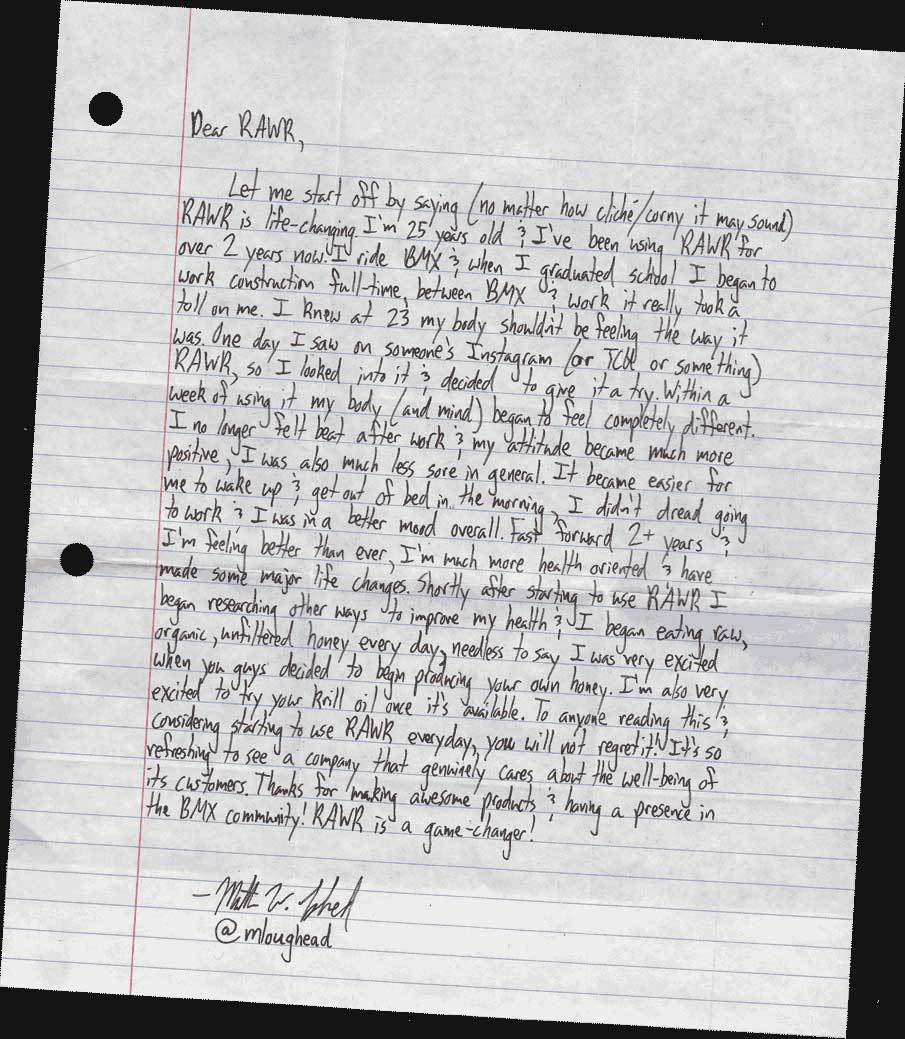 Dear RAWR,
Let me start off by saying (no matter how cliché/corny it may sound)
RAWR is life-changing. I'm 25 years old & I've been using RAWR for
over 2 years now. I ride BMX & when I graduated school I began to
work construction full-time, between BMX & work it really took a
toll on me. I knew at 23 my body shouldn't be feeling the way it
was. One day I saw on someone's Instagram (or TCU or something)
RAWR, so I looked into it & decided to give it a try. Within a
week of using it my body (and mind) began to feel completely different.
I no longer felt beat after work & my attitude became much more
positive, I was also much less sore in general. It became easier for
me to wake up & get out of bed in the morning, I didn't dread going
to work & I was in a better mood overall. Fast forward 2+ years &
I'm feeling better than ever, I'm much more health oriented & have
made some major life changes. Shortly after starting to use RAWR I
began researching other ways to improve my health & I began eating raw,
organic, unfiltered honey every day, needless to say I was very excited
when you guys decided to begin producing your own honey. I'm also very
excited to try your krill oil once it's available. To anyone reading this &
considering starting to use RAWR everyday, you will not regret it! It's so
refreshing to see a company that genuinely cares about the well-being of
its customers. Thanks for making awesome products & having a presence in
the BMX community! RAWR is a game-changer!
– Matt W.
@mloughead